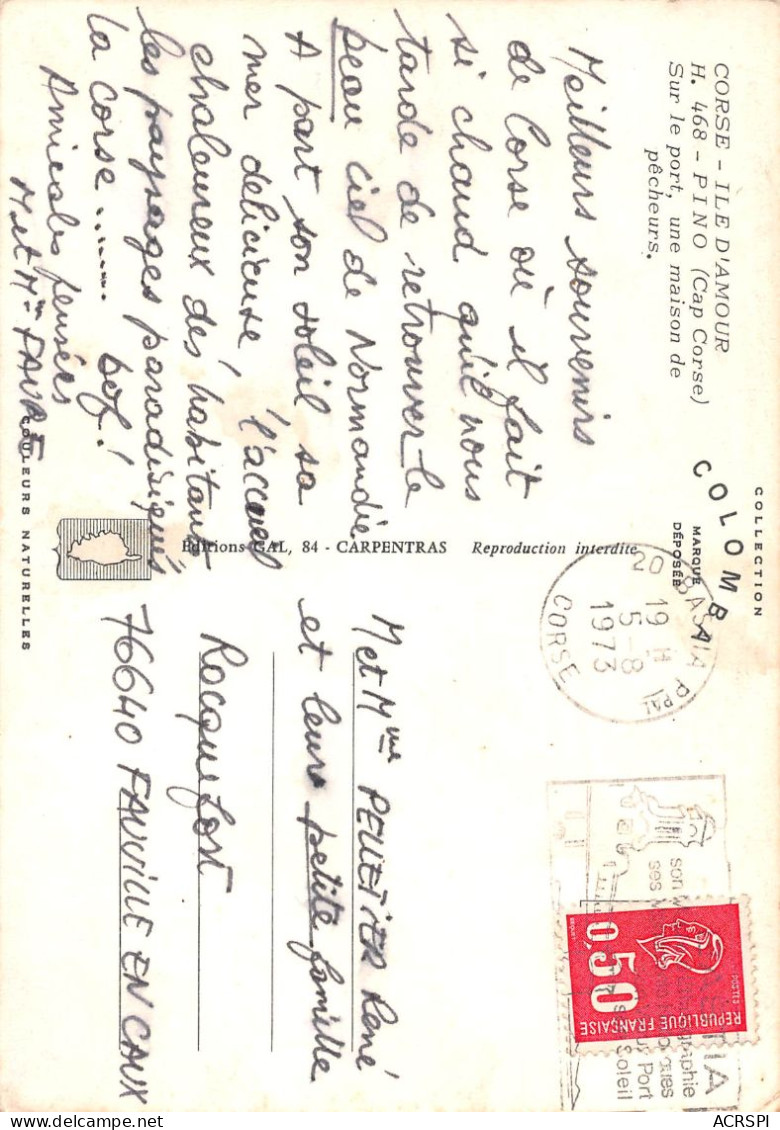 CORSE - ILE D'AMOUR
H. 468 - PINO (Cap Corse)
Sur le port, une maison de
pêcheurs.
Meilleurs souvenirs
de Corse où il fait
si chaud qu'il nous
tarde de retrouver le
beau ciel de Normandie
A part son soleil sa
mer délicieuse, l'accueil
chaleureux des habitants
les paysages paradisiaques
la corse....... bof!
Amicales pensées
M et Mme FAVRE
COLLECTION
COLOMBA
MARQUE
DÉPOSÉE
Editions GAL, 84 - CARPENTRAS Reproduction interdite
COULEURS NATURELLES
20 BASTIA PPAL
19 H
5-8
1973
CORSE
son
ses
Port
Soleil
POSTES
0,50
REPUBLIQUE FRANÇAISE
M et Mme PELLETIER René
et leur petite famille
Rocquefort
76640 FAUVILLE EN CAUX
ACRSPI